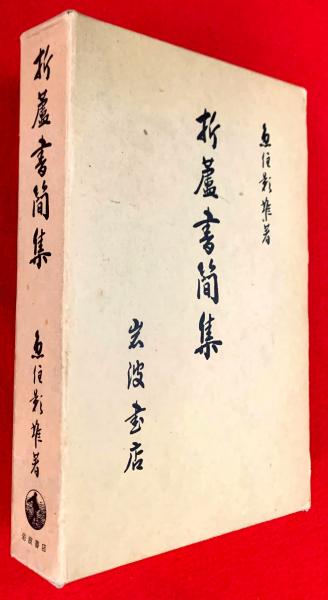 魚住影雄著
折蘆書簡集
岩波書店
折蘆書簡集
魚住影雄著
岩波書店